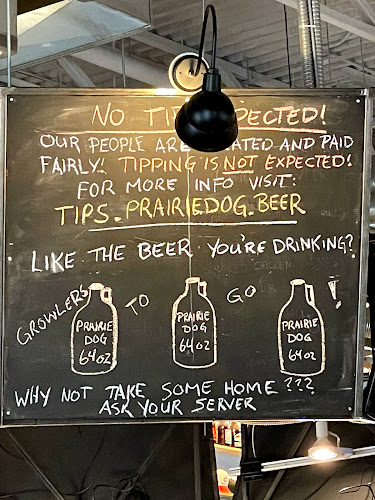 NO TI PECTED!
OUR PEOPLE ARE ATED AND PAID
FAIRLY! TIPPING IS NOT EXPECTED!
FOR MORE INFO VISIT:
TIPS.PRAIRIEDOG.BEER
LIKE THE BEER YOU'RE DRINKING?
GROWLERS TO GO!
PRAIRIE DOG 64 OZ PRAIRIE DOG 64 OZ PRAIRIE DOG 64 OZ
WHY NOT TAKE SOME HOME???
ASK YOUR SERVER